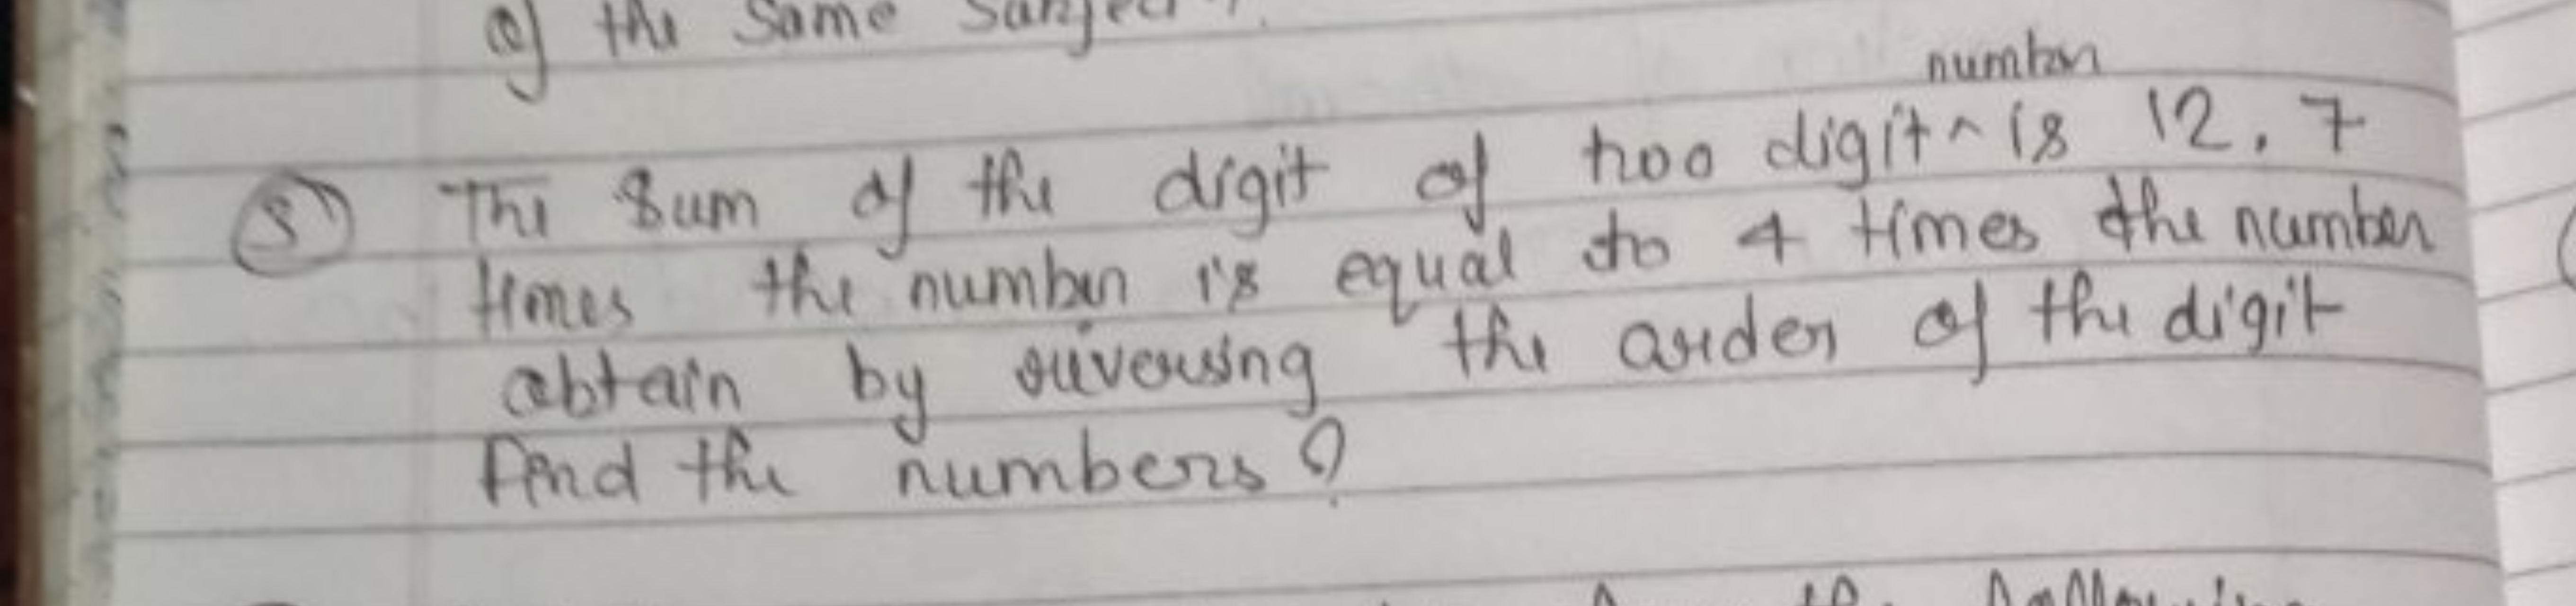 of the Same
number
5 The Sum of the digit of two digit ^ is 12. 7
times the number is equal to 4 times the number
obtain by reversing the order of the digit
find the numbers?